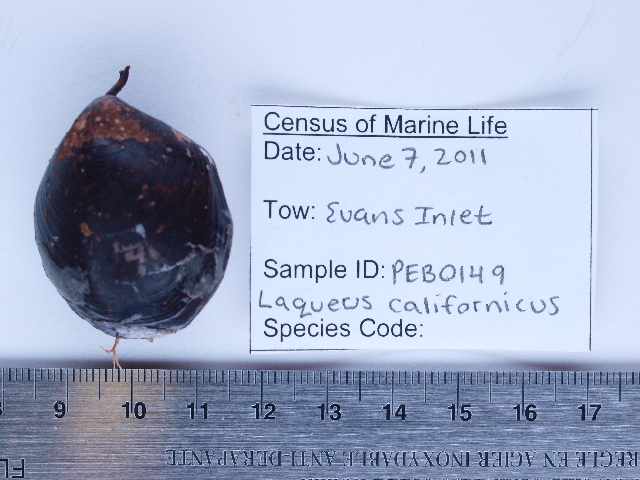 Census of Marine Life
Date: June 7, 2011
Tow: Evans Inlet
Sample ID: PEB0149
Laqueus californicus
Species Code:
9 10 11 12 13 14 15 16 17
RÈGLE EN ACIER INOXYDABLE ANTI-DÉRAPANTE